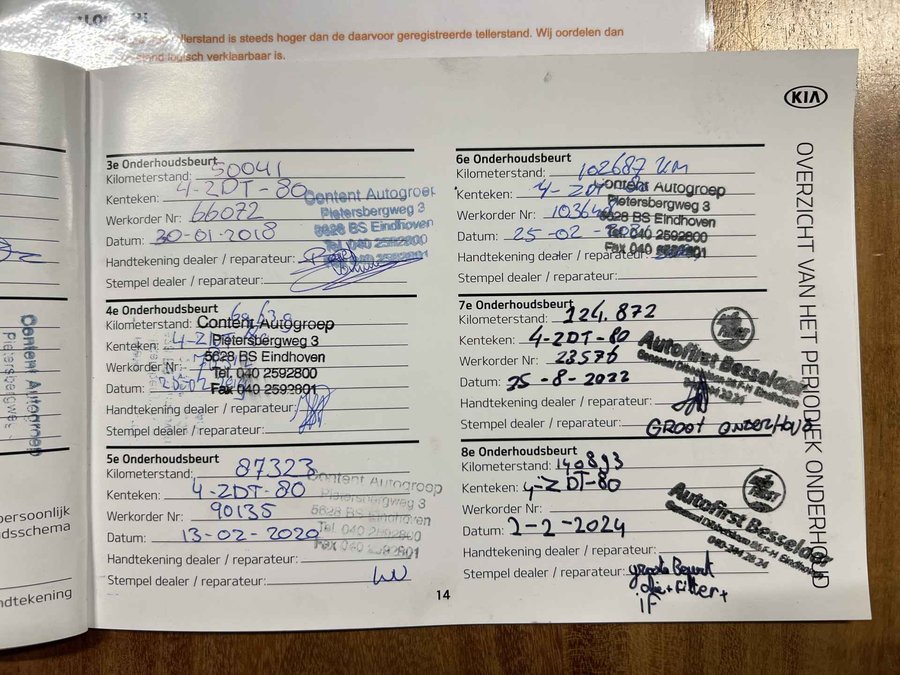 llerstand is steeds hoger dan de daarvoor geregistreerde tellerstand. Wij oordelen dan
logisch verklaarbaar is.
KIA
OVERZICHT VAN HET PERIODIEK ONDERHOUD
3e Onderhoudsbeurt
Kilometerstand: 50041
Kenteken: 4-ZDT-80
Werkorder Nr: 66072
Datum: 30-01-2018
Handtekening dealer / reparateur:
Stempel dealer / reparateur:
Content Autogroep
Pietersbergweg 3
5628 BS Eindhoven
Tel. 040 2592800
Fax 040 2592801
4e Onderhoudsbeurt
Kilometerstand:
Kenteken: 4-ZDT-80
Werkorder Nr:
Datum:
Handtekening dealer / reparateur:
Stempel dealer / reparateur:
Content Autogroep
Pietersbergweg 3
5628 BS Eindhoven
Tel. 040 2592800
Fax 040 2592801
5e Onderhoudsbeurt
Kilometerstand: 87323
Kenteken: 4-ZDT-80
Werkorder Nr: 90135
Datum: 13-02-2020
Handtekening dealer / reparateur:
Stempel dealer / reparateur:
Content Autogroep
Pietersbergweg 3
5628 BS Eindhoven
Tel. 040 2592800
Fax 040 2592801
6e Onderhoudsbeurt
Kilometerstand: 102687 KM
Kenteken: 4-ZDT-80
Werkorder Nr:
Datum: 25-02-
Handtekening dealer / reparateur:
Stempel dealer / reparateur:
Content Autogroep
Pietersbergweg 3
5628 BS Eindhoven
Tel. 040 2592800
Fax 040
7e Onderhoudsbeurt
Kilometerstand: 124.872
Kenteken: 4-ZDT-80
Werkorder Nr: 23576
Datum: 25-8-2022
Handtekening dealer / reparateur:
Stempel dealer / reparateur: GROOT ONDERHOUD
Autofirst Besselaar
8e Onderhoudsbeurt
Kilometerstand: 140893
Kenteken: 4-ZDT-80
Werkorder Nr:
Datum: 2-2-2024
Handtekening dealer / reparateur:
Stempel dealer / reparateur: grote Beurt
olie+Filter+
iF
Autofirst Besselaar
040-244 28 24
14
Content Autogroep
Pietersbergweg
persoonlijk
dsschema
ndtekening